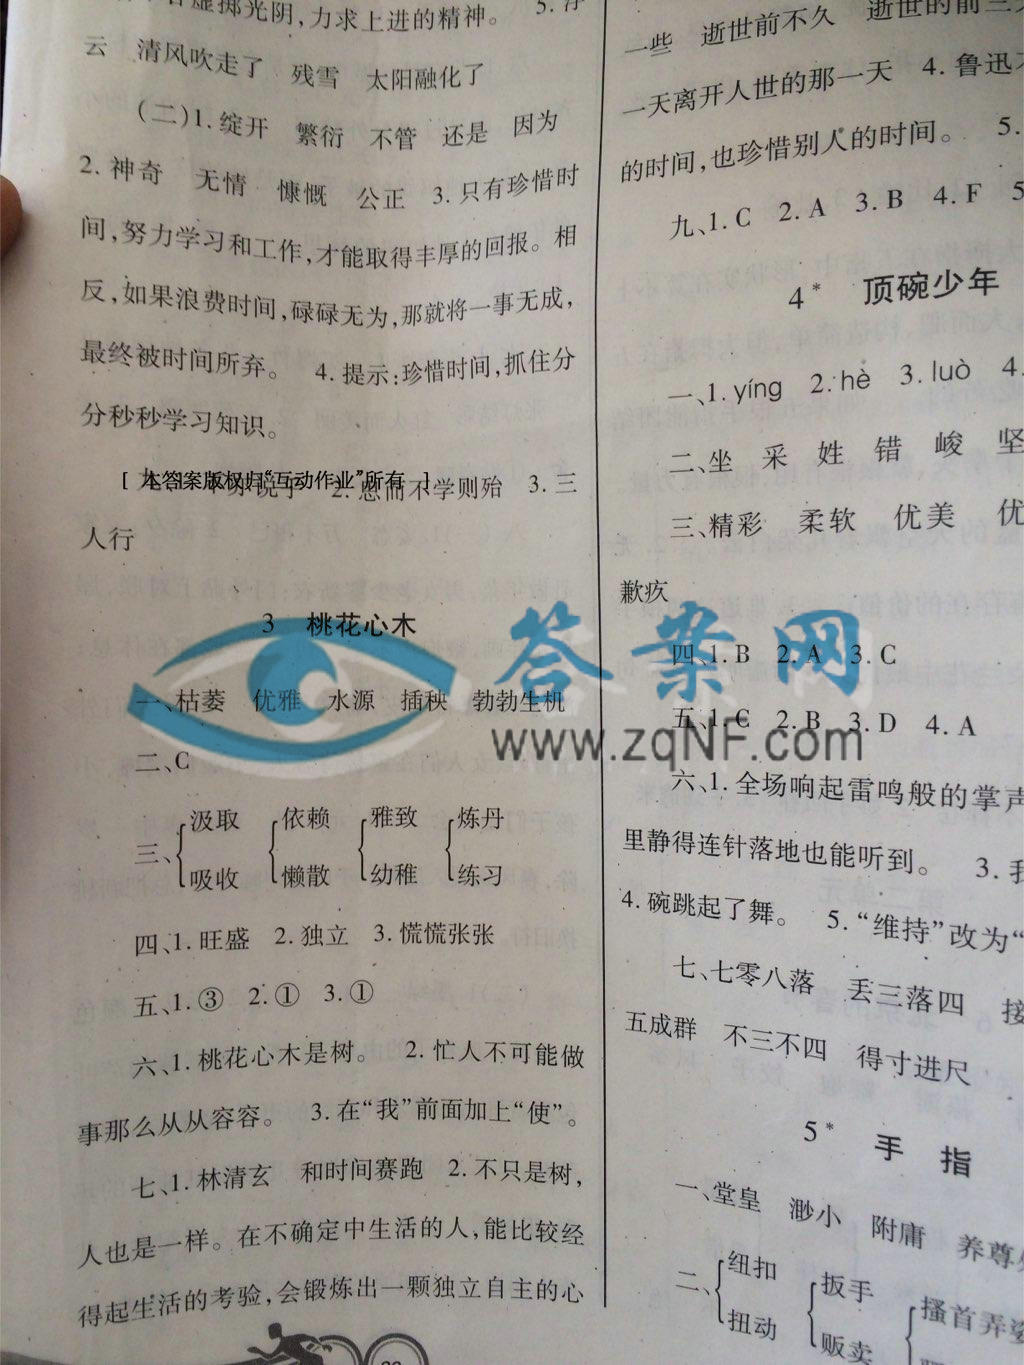 虚掷光阴,力求上进的精神。 5. 浮
云 清风吹走了 残雪 太阳融化了
(二)1. 绽开 繁衍 不管 还是 因为
2. 神奇 无情 慷慨 公正 3. 只有珍惜时
间,努力学习和工作,才能取得丰厚的回报。相
反,如果浪费时间,碌碌无为,那就将一事无成,
最终被时间所弃。 4. 提示:珍惜时间,抓住分
分秒秒学习知识。
[ 本答案版权归“互动作业”所有 ]
2. 思而不学则殆 3. 三
人行
3 桃花心木
一、枯萎 优雅 水源 插秧 勃勃生机
二、C
三、
汲取 依赖 雅致 炼丹
吸收 懒散 幼稚 练习
四、1. 旺盛 2. 独立 3. 慌慌张张
五、1. ③ 2. ① 3. ①
六、1. 桃花心木是树。 2. 忙人不可能做
事那么从从容容。 3. 在“我”前面加上“使”。
七、1. 林清玄 和时间赛跑 2. 不只是树,
人也是一样。在不确定中生活的人,能比较经
得起生活的考验,会锻炼出一颗独立自主的心
一些 逝世前不久 逝世的前三
一天离开人世的那一天 4. 鲁迅
的时间,也珍惜别人的时间。 5.
九、1. C 2. A 3. B 4. F 5
4* 顶碗少年
一、1. yíng 2. hè 3. luò 4.
二、坐 采 姓 错 峻 坚
三、精彩 柔软 优美 优
歉疚
四、1. B 2. A 3. C
五、1. C 2. B 3. D 4. A
六、1. 全场响起雷鸣般的掌声
里静得连针落地也能听到。 3. 我
4. 碗跳起了舞。 5. “维持”改为“
七、七零八落 丢三落四 接
五成群 不三不四 得寸进尺
5* 手指
一、堂皇 渺小 附庸 养尊处
二、
纽扣 扳手 搔首弄姿
扭动 贩卖
答案网
www.zqNF.com